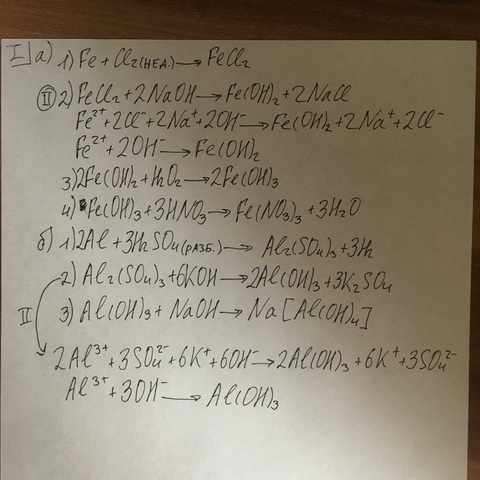 I а) 1) Fe + Cl₂(НЕД.) → FeCl₂
II 2) FeCl₂ + 2NaOH → Fe(OH)₂ + 2NaCl
Fe²⁺ + 2Cl⁻ + 2Na⁺ + 2OH⁻ → Fe(OH)₂ + 2Na⁺ + 2Cl⁻
Fe²⁺ + 2OH⁻ → Fe(OH)₂
3) 2Fe(OH)₂ + H₂O₂ → 2Fe(OH)₃
4) Fe(OH)₃ + 3HNO₃ → Fe(NO₃)₃ + 3H₂O
б) 1) 2Al + 3H₂SO₄(РАЗБ.) → Al₂(SO₄)₃ + 3H₂
2) Al₂(SO₄)₃ + 6KOH → 2Al(OH)₃ + 3K₂SO₄
II 3) Al(OH)₃ + NaOH → Na[Al(OH)₄]
2Al³⁺ + 3SO₄²⁻ + 6K⁺ + 6OH⁻ → 2Al(OH)₃ + 6K⁺ + 3SO₄²⁻
Al³⁺ + 3OH⁻ → Al(OH)₃